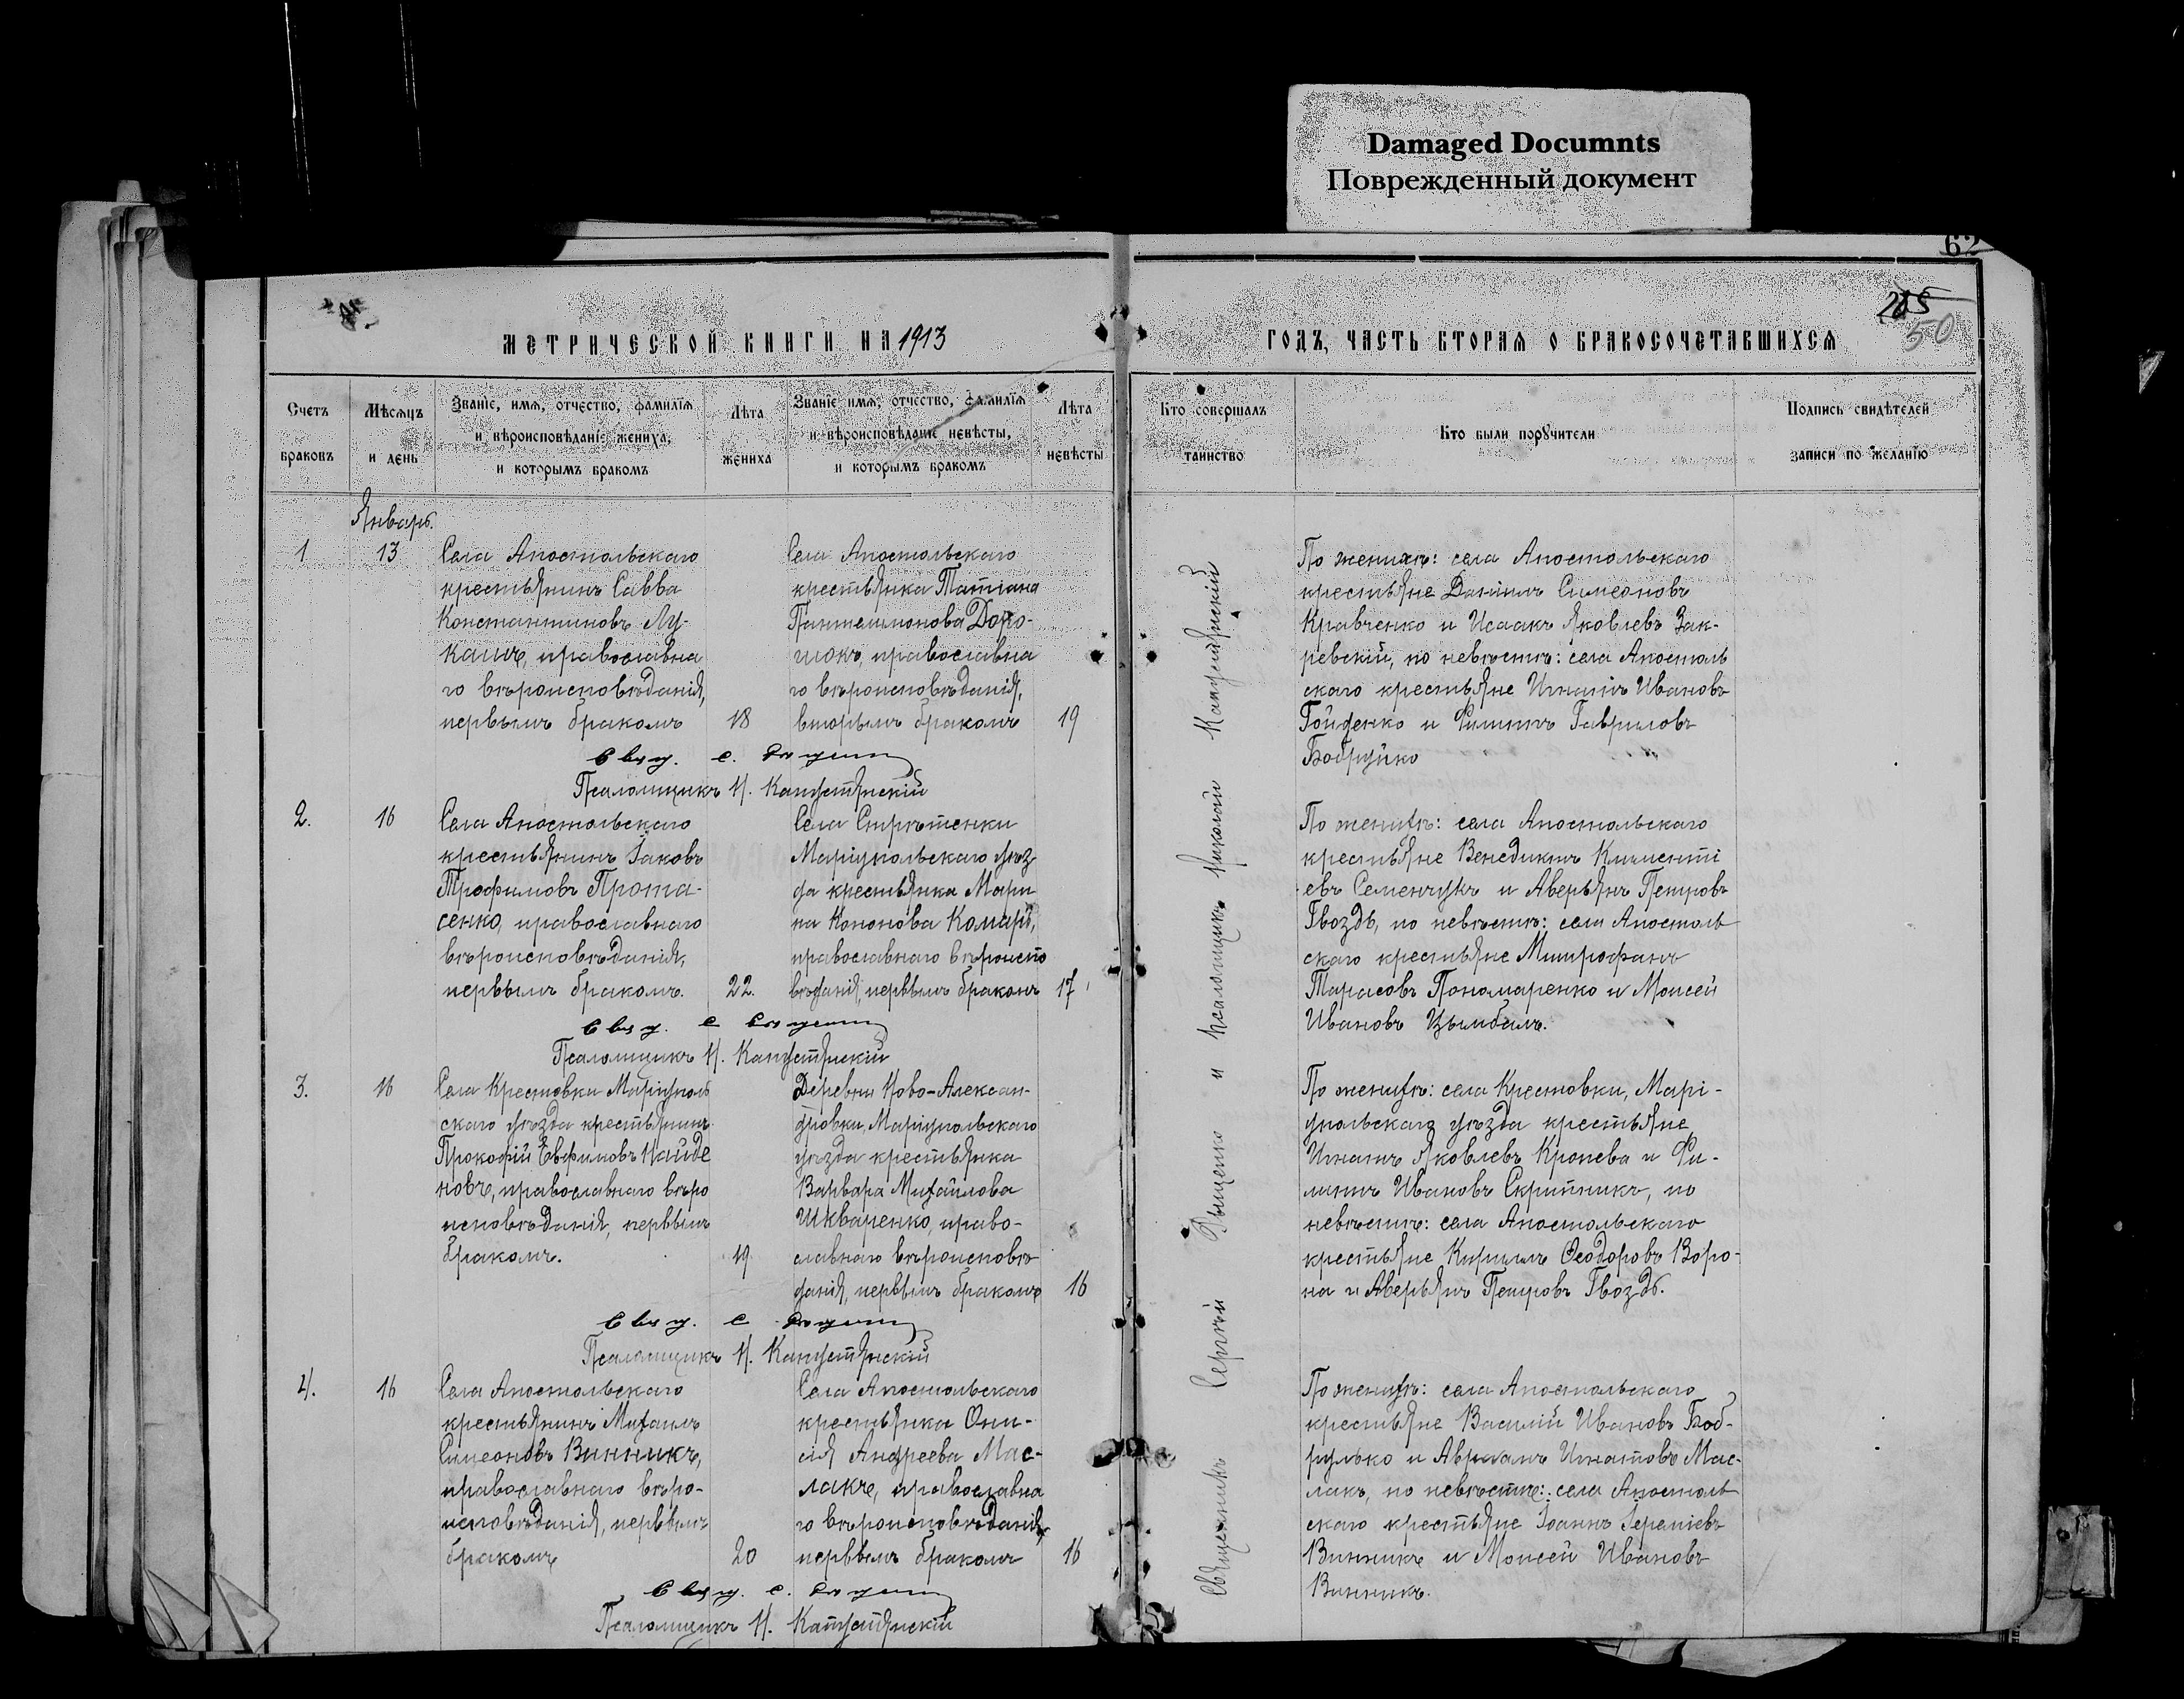 Damaged Documnts
Поврежденный документ
62
205
50
МЕТРИЧЕСКОЙ КНИГИ НА 1913
ГОДЪ, ЧАСТЬ ВТОРАЯ О БРАКОСОЧЕТАВШИХСЯ
Счетъ браковъ
Мѣсяцъ и день
Званіе, имя, отчество, фамилія и вѣроисповѣданіе жениха, и которымъ бракомъ
Лѣта жениха
Званіе, имя, отчество, фамилія и вѣроисповѣданіе невѣсты, и которымъ бракомъ
Лѣта невѣсты
Кто совершалъ таинство
Кто были порꙋчители
Подпись свидѣтелей записи по желанію
Январь.
1
13
Села Апостольскаго
крестьянинъ Савва
Константиновъ Лу-
кашъ, православна
го вѣроисповѣданія,
первымъ бракомъ
18
Села Апостольскаго
крестьянка Татіана
Пантелимонова
православна
го вѣроисповѣданія,
вторымъ бракомъ
19
По женихѣ: села Апостольскаго
крестьяне Даніилъ Симеоновъ
Кравченко и Исаакъ Яковлевъ Зак-
ревскій, по невѣстѣ: села Апостоль
скаго крестьяне Игнатій Ивановъ
Гойденко и Филиппъ Гавриловъ
Псаломщикъ Н. Капустянскій
2.
16
Села Апостольскаго
крестьянинъ Іаковъ
Трофимовъ Прота-
сенко, православнаго
вѣроисповѣданія,
первымъ бракомъ.
22.
Села Стрѣтенки
Маріупольскаго уѣз
да крестьянка Мари
на Кононова Комарь,
православнаго вѣроиспо
вѣданія, первымъ бракомъ
17
По женихѣ: села Апостольскаго
крестьяне Венедиктъ Клименті
евъ Семенчукъ и Аверьянъ Петровъ
Гвоздь, по невѣстѣ: села Апостоль
скаго крестьяне Митрофанъ
Тарасовъ Пономаренко и Моисей
Ивановъ Цымбалъ.
Псаломщикъ Н. Капустянскій
3.
16
Села Крестовки Маріуполь
скаго уѣзда крестьянинъ
Прокофій Евфимовъ Найде
новъ, православнаго вѣро
исповѣданія, первымъ
бракомъ.
19
Деревни Ново-Алексан-
дровки, Маріупольскаго
уѣзда крестьянка
Варвара Михайлова
Шкваренко, право-
славнаго вѣроисповѣ
данія, первымъ бракомъ
16
По женихѣ: села Крестовки, Марі-
упольскаго уѣзда крестьяне
Игнатъ Яковлевъ Кропева и Фи-
липпъ Ивановъ Скрипникъ, по
невѣстѣ: села Апостольскаго
крестьяне Кириллъ Ѳеодоровъ Воро-
на и Аверьянъ Петровъ Гвоздь.
Псаломщикъ Н. Капустянскій
4.
16
Села Апостольскаго
крестьянинъ Михаилъ
Симеоновъ Винникъ,
православнаго вѣро-
исповѣданія, первымъ
бракомъ
20
Села Апостольскаго
крестьянка Они-
сія Андреева Мас-
лакъ, православна
го вѣроисповѣданія,
первымъ бракомъ
16
По женихѣ: села Апостольскаго
крестьяне Василій Ивановъ Боб-
рулько и Авраамъ Игнатовъ Мас-
лакъ, по невѣстѣ: села Апостоль
скаго крестьяне Іоаннъ Іереміевъ
Винникъ и Моисей Ивановъ
Винникъ.
Псаломщикъ Н. Капустянскій
Священникъ Сергій и псаломщикъ Николай Капустянскій